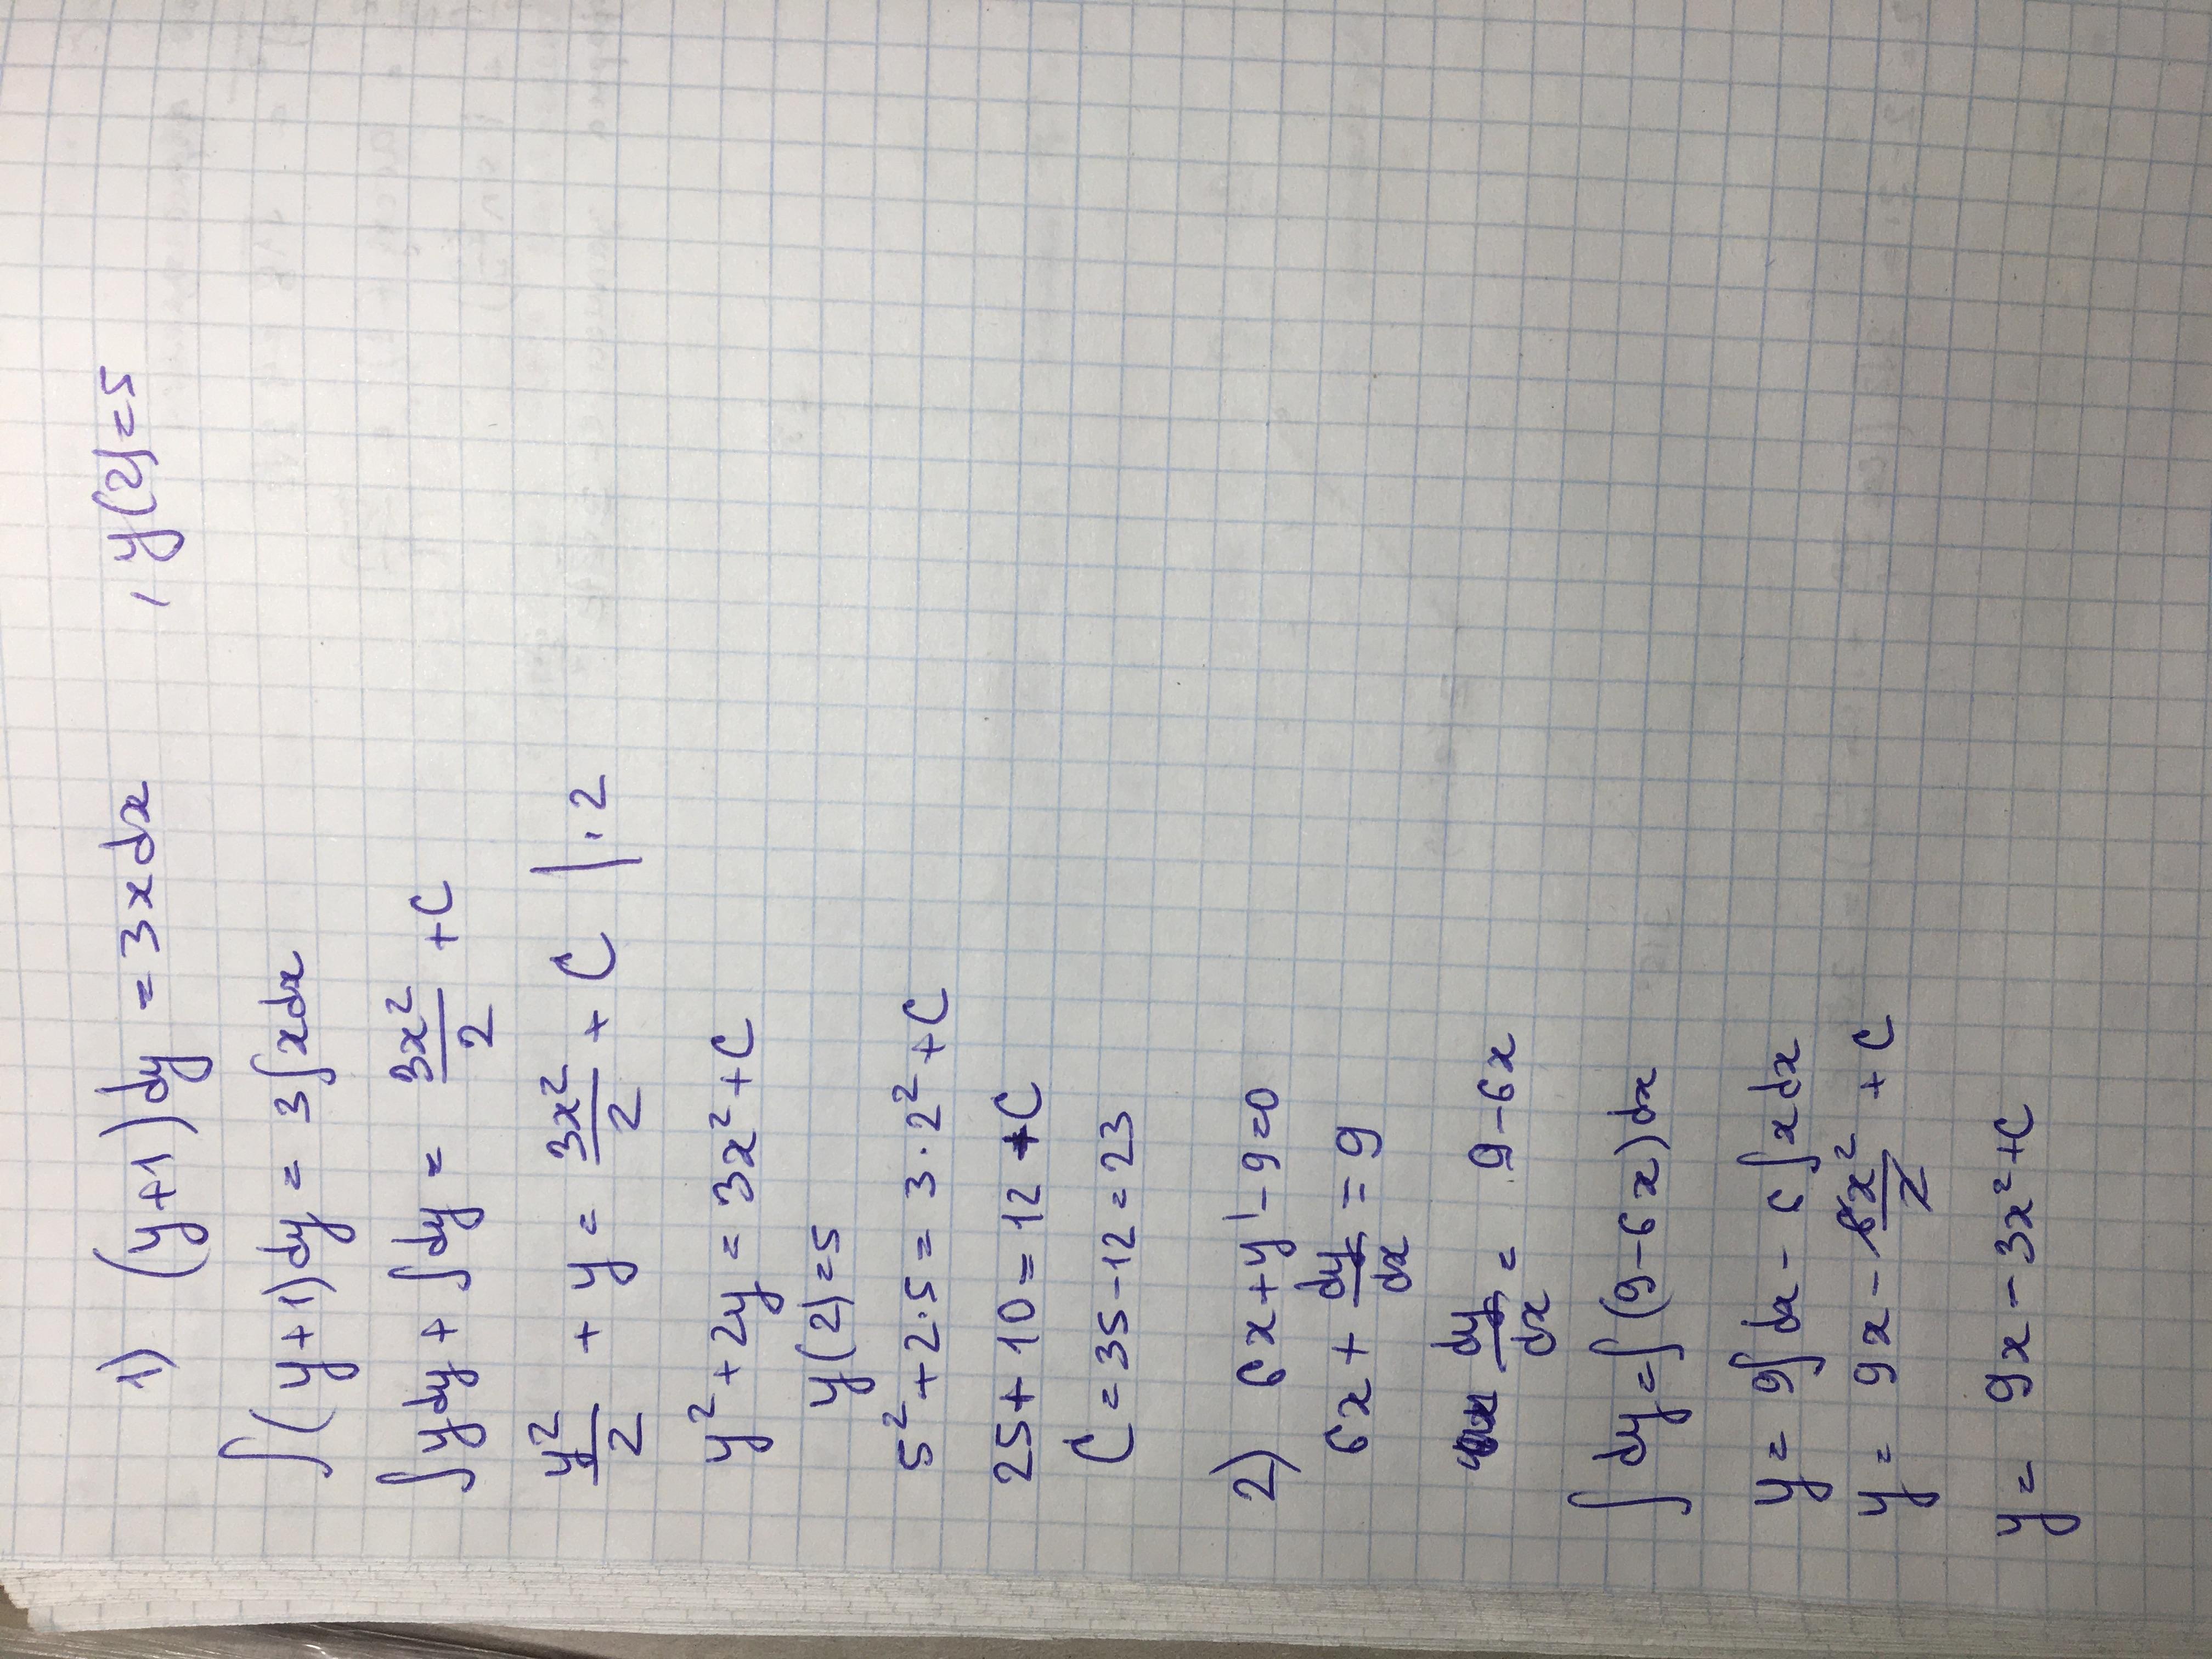 1) (y+1)dy = 3xdx , y(2)=5
∫(y+1)dy = 3∫xdx
∫ydy + ∫dy = 3x²/2 + C
y²/2 + y = 3x²/2 + C | · 2
y² + 2y = 3x² + C
y(2)=5
5² + 2·5 = 3·2² + C
25 + 10 = 12 + C
C = 35 - 12 = 23
2) 6x + y' - 9 = 0
6x + dy/dx = 9
dy/dx = 9 - 6x
∫dy = ∫(9 - 6x)dx
y = 9∫dx - 6∫xdx
y = 9x - 6x²/2 + C
y = 9x - 3x² + C